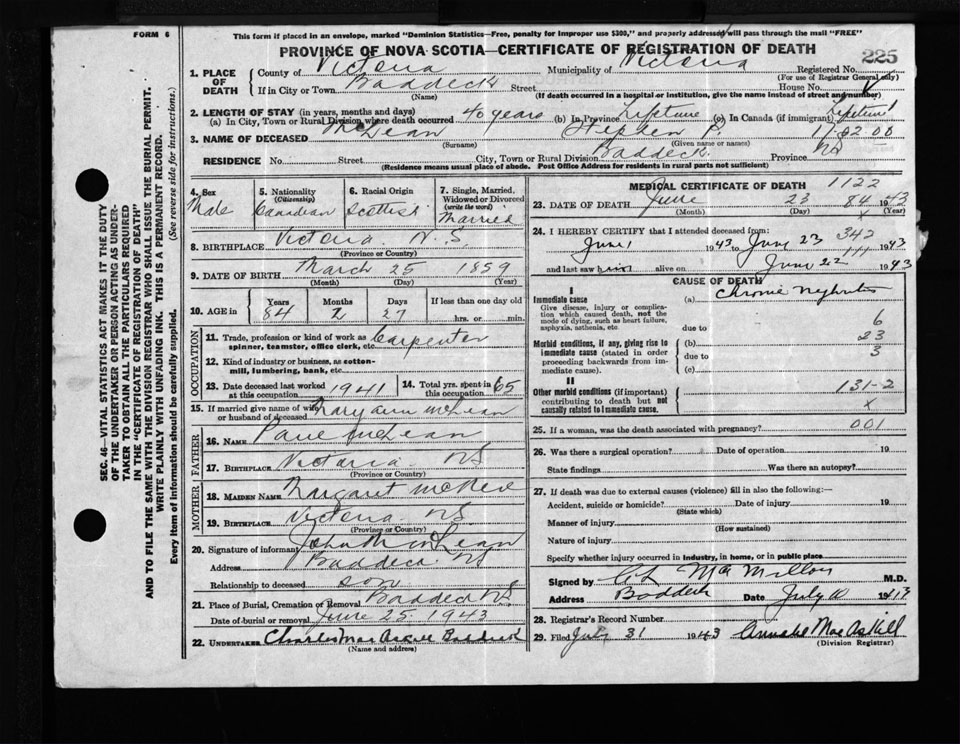 FORM 6
This form if placed in an envelope, marked "Dominion Statistics—Free, penalty for improper use $300," and properly addressed will pass through the mail "FREE"
PROVINCE OF NOVA SCOTIA—CERTIFICATE OF REGISTRATION OF DEATH
225
1. PLACE OF DEATH
County of Victoria Municipality of Victoria Registered No.
(For use of Registrar General only)
If in City or Town Baddeck Street House No. 6
(Name) (If death occurred in a hospital or institution, give the name instead of street and number)
2. LENGTH OF STAY (in years, months and days)
(a) In City, Town or Rural Division where death occurred 40 years (b) In Province Lifetime (c) In Canada (if immigrant) Lifetime
3. NAME OF DECEASED McLean Stephen P. 11-02 00
(Surname) (Given name or names)
RESIDENCE No. Street City, Town or Rural Division Baddeck Province NS
(Residence means usual place of abode. Post Office Address for residents in rural parts not sufficient)
4. Sex Male
5. Nationality (Citizenship) Canadian
6. Racial Origin Scottish
7. Single, Married, Widowed or Divorced (write the word) Married
8. BIRTHPLACE Victoria N.S.
(Province or Country)
9. DATE OF BIRTH March 25 1859
(Month) (Day) (Year)
10. AGE in Years Months Days If less than one day old
84 2 27 hrs. or min.
OCCUPATION
11. Trade, profession or kind of work as spinner, teamster, office clerk, etc. Carpenter
12. Kind of industry or business, as cotton-mill, lumbering, bank, etc.
23. Date deceased last worked at this occupation 1941
14. Total yrs. spent in this occupation 65
15. If married give name of wife or husband of deceased Mary Ann McLean
FATHER
16. Name McLean
17. Birthplace Victoria NS
(Province or Country)
MOTHER
18. Maiden Name Margaret
19. Birthplace Victoria NS
(Province or Country)
20. Signature of informant John M McLean
Address Baddeck NS
Relationship to deceased son
21. Place of Burial, Cremation or Removal Baddeck NS
Date of burial or removal June 25 1943
22. UNDERTAKER Charles Mac Askill Baddeck
(Name and address)
MEDICAL CERTIFICATE OF DEATH 1122
23. DATE OF DEATH June 23 84 1943
(Month) (Day) X (Year)
24. I HEREBY CERTIFY that I attended deceased from: 342
June 1 1943 to June 23 1943
111
and last saw him alive on June 22 1943
CAUSE OF DEATH
I
Immediate cause (a) Chronic Nephritis
Give disease, injury or complication which caused death, not the mode of dying, such as heart failure, asphyxia, asthenia, etc.
due to 6
Morbid conditions, if any, giving rise to immediate cause (stated in order proceeding backwards from immediate cause).
(b) 23
due to 3
(c)
II
Other morbid conditions (if important) contributing to death but not causally related to immediate cause.
131-2
X
25. If a woman, was the death associated with pregnancy? 001
26. Was there a surgical operation? Date of operation 19
State findings Was there an autopsy?
27. If death was due to external causes (violence) fill in also the following:—
Accident, suicide or homicide? Date of injury 19
(State which)
Manner of injury
(How sustained)
Nature of injury
Specify whether injury occurred in industry, in home, or in public place
Signed by Mac Millan M.D.
Address Baddeck Date July 10 1943
28. Registrar's Record Number
29. Filed July 31 1943 Annabel Mac Askill
(Division Registrar)
SEC. 46—VITAL STATISTICS ACT MAKES IT THE DUTY
OF THE UNDERTAKER OR PERSON ACTING AS UNDER-
TAKER TO OBTAIN ALL THE PARTICULARS REQUIRED
IN THE "CERTIFICATE OF REGISTRATION OF DEATH"
AND TO FILE THE SAME WITH THE DIVISION REGISTRAR WHO SHALL ISSUE THE BURIAL PERMIT.
WRITE PLAINLY WITH UNFADING INK. THIS IS A PERMANENT RECORD.
Every item of Information should be carefully supplied. (See reverse side for instructions.)